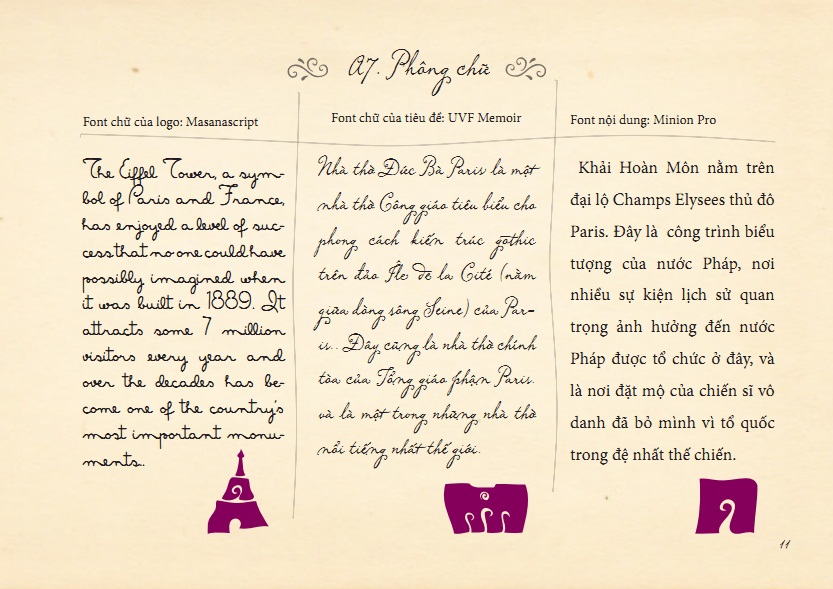 A7. Phông chữ
Font chữ của logo: Masanascript
The Eiffel Tower, a sym-
bol of Paris and France,
has enjoyed a level of suc-
cess that no one could have
possibly imagined when
it was built in 1889. It
attracts some 7 million
visitors every year and
over the decades has be-
come one of the country's
most important monu-
ments.
Font chữ của tiêu đề: UVF Memoir
Nhà thờ Đức Bà Paris là một
nhà thờ Công giáo tiêu biểu cho
phong cách kiến trúc gothic
trên đảo Île de la Cité (nằm
giữa dòng sông Seine) của Par-
is.. Đây cũng là nhà thờ chính
tòa của Tổng giáo phận Paris.
và là một trong những nhà thờ
nổi tiếng nhất thế giới.
Font nội dung: Minion Pro
Khải Hoàn Môn nằm trên
đại lộ Champs Elysees thủ đô
Paris. Đây là công trình biểu
tượng của nước Pháp, nơi
nhiều sự kiện lịch sử quan
trọng ảnh hưởng đến nước
Pháp được tổ chức ở đây, và
là nơi đặt mộ của chiến sĩ vô
danh đã bỏ mình vì tổ quốc
trong đệ nhất thế chiến.
11